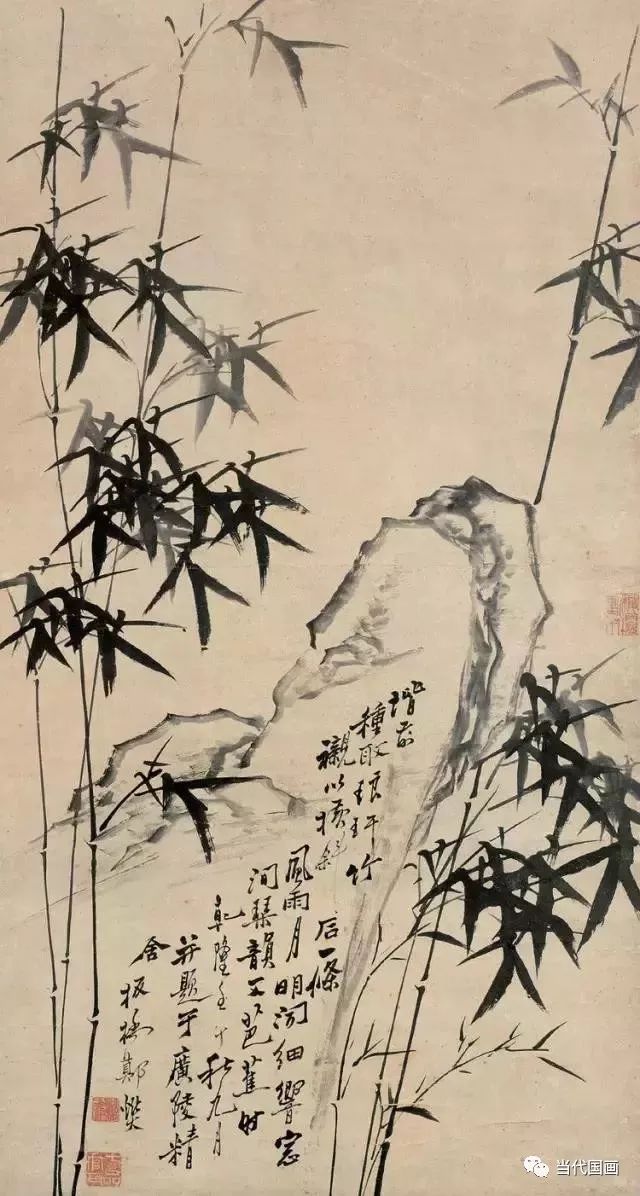 階前
種取琅玕竹
襯以横斜
石一條
風雨月明聞細響窓
間琴韻又芭蕉时
乾隆壬午秋九月
并題于廣陵精
舍
板橋鄭燮
当代国画